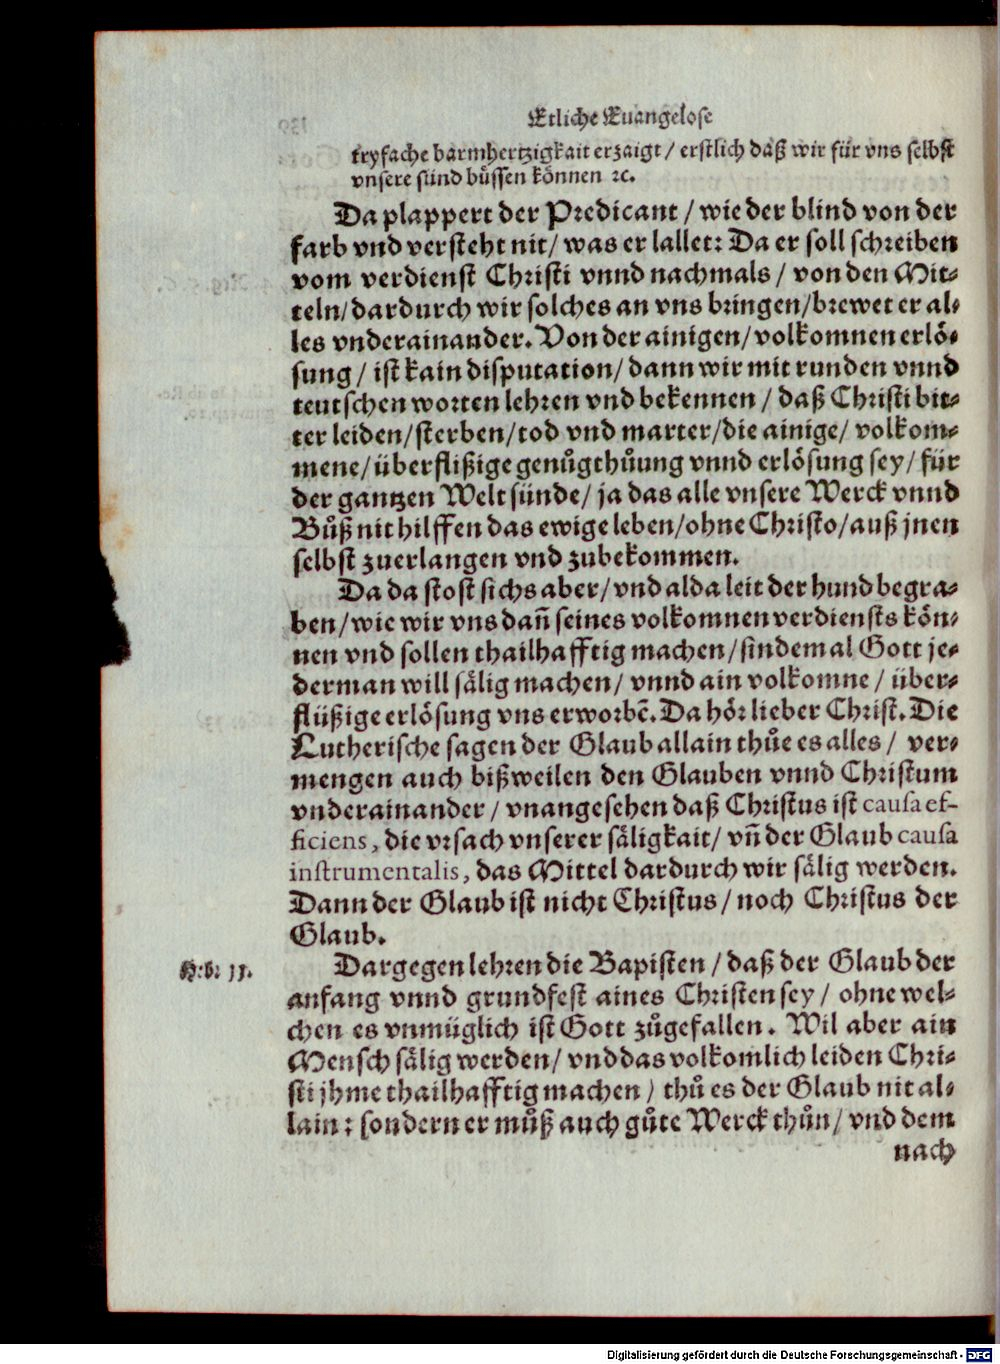 Etliche Euangelose
tryfache barmhertzigkait erzaigt / erstlich daß wir für vns selbst
vnsere sünd bůssen können ꝛc.
Da plappert der Predicant / wie der blind von der
farb vnd versteht nit / was er lallet: Da er soll schreiben
vom verdienst Christi vnnd nachmals / von den Mit⸗
teln / dardurch wir solches an vns bringen / brewet er al⸗
les vnderainander. Von der ainigen / volkomnen erlö⸗
sung / ist kain disputation / dann wir mit runden vnnd
teutschen worten lehren vnd bekennen / daß Christi bit⸗
ter leiden / sterben / tod vnd marter / die ainige / volkom⸗
mene / überflißige genůgthůung vnnd erlösung sey / für
der gantzen Welt sünde / ja das alle vnsere Werck vnnd
Bůß nit hilffen das ewige leben / ohne Christo / auß jnen
selbst zuerlangen vnd zubekommen.
Da da stost sichs aber / vnd alda leit der hund begra⸗
ben / wie wir vns dañ seines volkomnen verdiensts kön⸗
nen vnd sollen thailhafftig machen / sindemal Gott je⸗
derman will sälig machen / vnnd ain volkomne / über⸗
flüßige erlösung vns erworbẽ. Da hör lieber Christ. Die
Lutherische sagen der Glaub allain thůe es alles / ver⸗
mengen auch bißweilen den Glauben vnnd Christum
vnderainander / vnangesehen daß Christus ist causa ef-
ficiens, die vrsach vnserer säligkait / vñ der Glaub causa
instrumentalis, das Mittel dardurch wir sälig werden.
Dann der Glaub ist nicht Christus / noch Christus der
Glaub.
Heb. 11.
Dargegen lehren die Bapisten / daß der Glaub der
anfang vnnd grundfest aines Christen sey / ohne wel⸗
chen es vnmüglich ist Gott zůgefallen. Wil aber ain
Mensch sälig werden / vnd das volkomlich leiden Chri⸗
sti jhme thailhafftig machen / thů es der Glaub nit al⸗
lain: sondern er můß auch gůte Werck thůn / vnd dem
nach
Digitalisierung gefördert durch die Deutsche Forschungsgemeinschaft - DFG